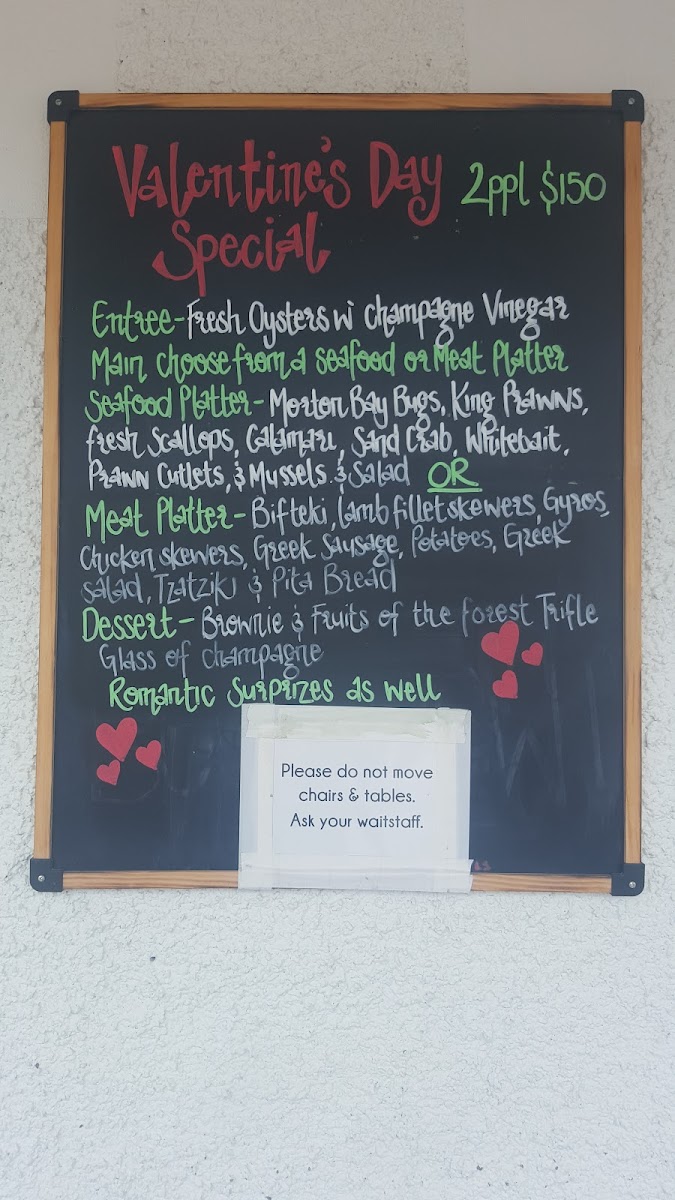 Valentine's Day 2ppl $150
Special
Entree - Fresh Oysters w Champagne Vinegar
Main choose from a seafood or Meat Platter
Seafood Platter - Morton Bay Bugs, King Prawns,
fresh Scallops, Calamari, Sand Crab, Whitebait,
Prawn Cutlets, & Mussels & Salad OR
Meat Platter - Bifteki, lamb fillet skewers, Gyros,
Chicken skewers, Greek Sausage, Potatoes, Greek
salad, Tzatziki & Pita Bread
Dessert - Brownie & Fruits of the forest Trifle
Glass of champagne
Romantic Surprizes as well
Please do not move
chairs & tables.
Ask your waitstaff.